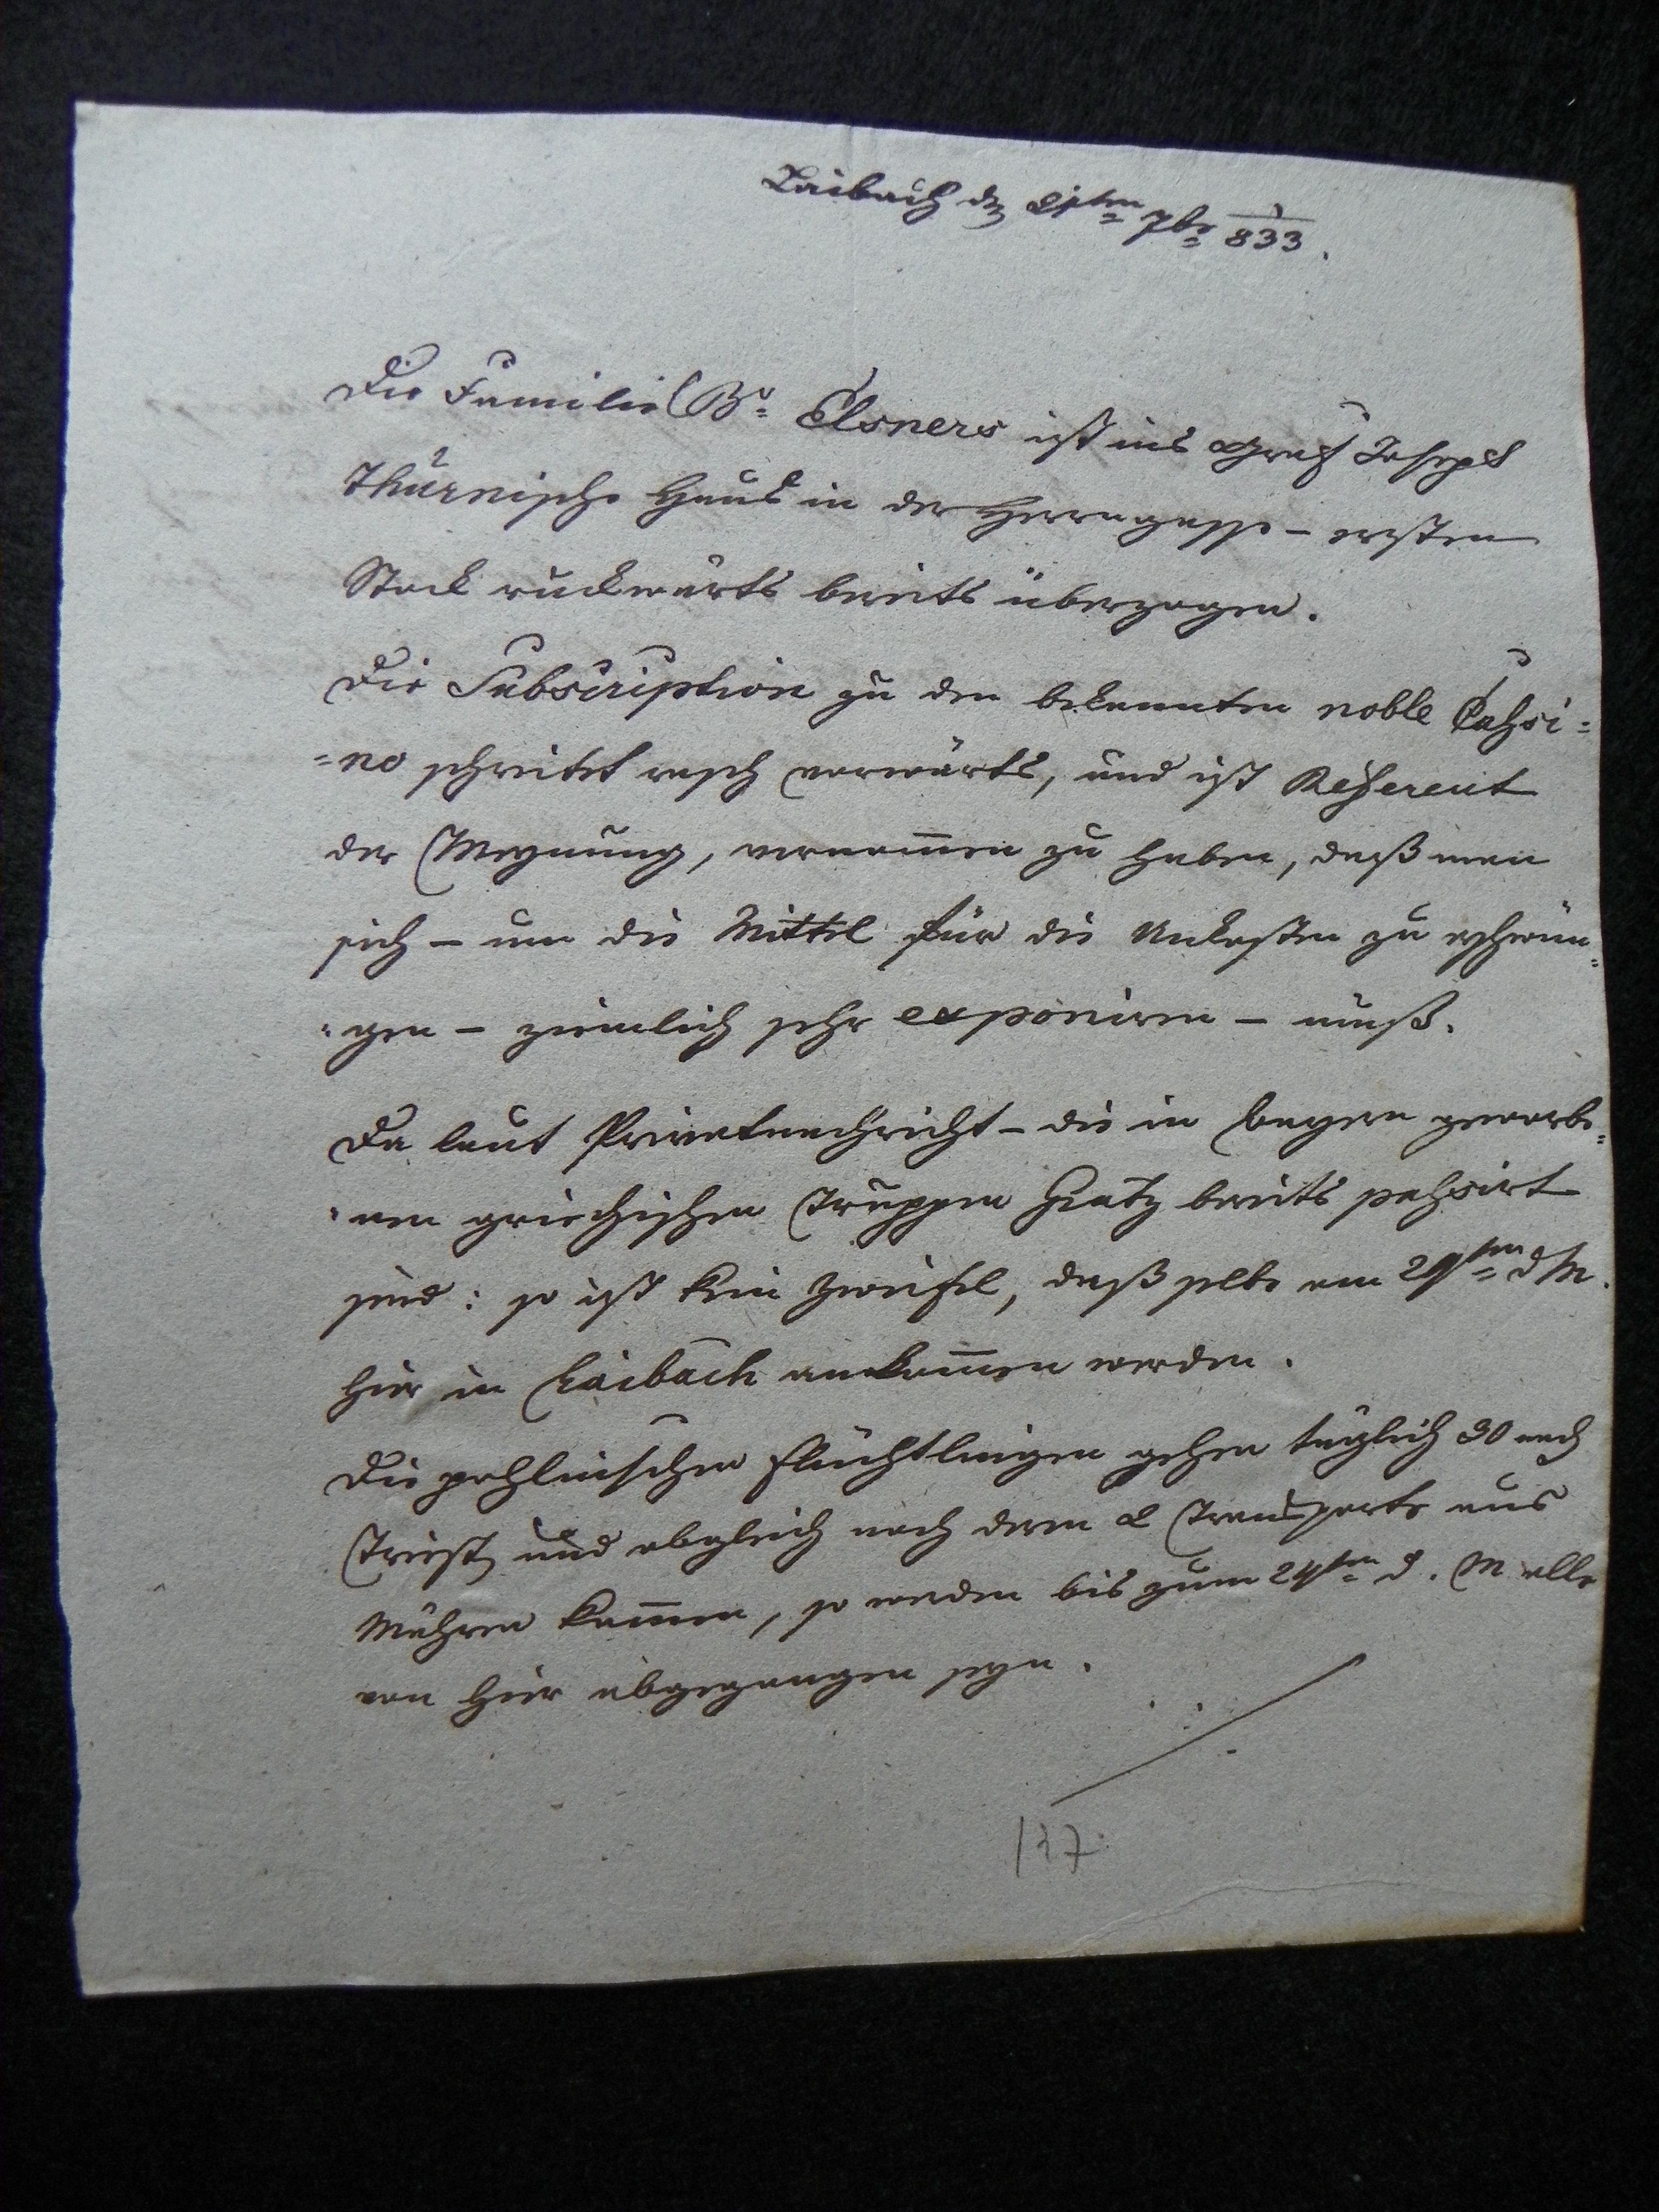 Laibach den 21ten 7br 1/833.
Die Familie Br. Elsners ist ins Graf Joseph
Thurnische Haus in der Herrngasse – ersten
Stock ruckwärts bereits überzogen.
Die Subscription zu den bekannten noble Cahsi=
=no schreitet rasch vorwärts, und ist Referent
der Meynung, vernom̅en zu haben, daß man
sich – um die Mittel für die Unkosten zu erschwin=
=gen – ziemlich sehr exponiren – muß.
Da laut Privatnachricht – die in Bayern geworbe=
=nen griechischen Truppen Gratz bereits pahsirt
sind: so ist kein Zweifel, daß selbe am 29ten d M.
hier in Laibach ankom̅en werden.
Die pohlnischen Flüchtlingen gehen täglich 30 nach
Triest, und obgleich noch deren 2 Transporte aus
Mähren kom̅en, so werden bis zum 24ten d. M alle
von hier abgegangen seyn.
137